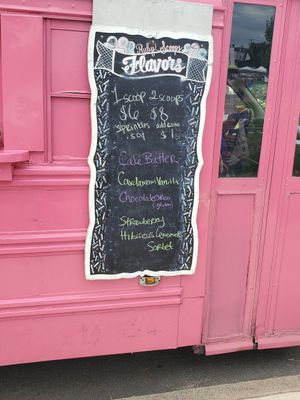 Ruby Scoops
Flavors
1 scoop 2 scoops
$6 $8
sprinkles add cone
.50¢ $1
Cake Batter
Cardamom Vanilla
Strawberry
Hibiscus Lemonade
Sorbet